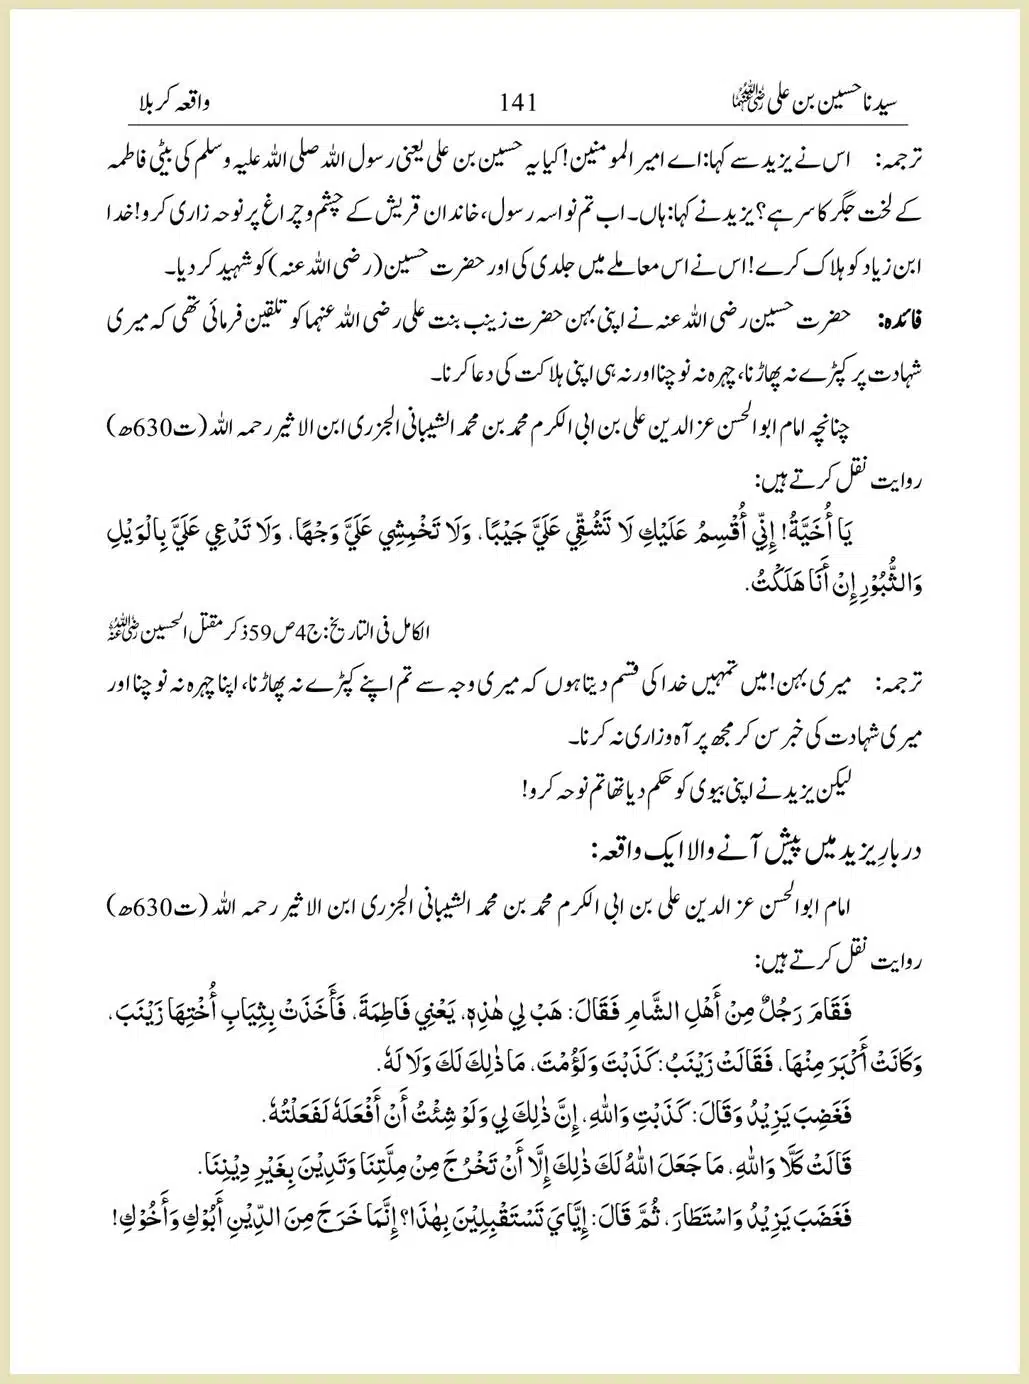 سیدنا حسین بن علی رضی اللہ عنہما 141 واقعہ کربلا
ترجمہ: اس نے یزید سے کہا: اے امیر المومنین! کیا یہ حسین بن علی یعنی رسول اللہ صلی اللہ علیہ وسلم کی بیٹی فاطمہ
کے لخت جگر کا سر ہے؟ یزید نے کہا: ہاں۔ اب تم نواسہ رسول، خاندان قریش کے چشم و چراغ پر نوحہ زاری کرو! خدا
ابن زیاد کو ہلاک کرے! اس نے اس معاملے میں جلدی کی اور حضرت حسین (رضی اللہ عنہ) کو شہید کر دیا۔
فائدہ: حضرت حسین رضی اللہ عنہ نے اپنی بہن حضرت زینب بنت علی رضی اللہ عنہما کو تلقین فرمائی تھی کہ میری
شہادت پر کپڑے نہ پھاڑنا، چہرہ نہ نوچنا اور نہ ہی اپنی ہلاکت کی دعا کرنا۔
چنانچہ امام ابو الحسن عز الدین علی بن ابی الکرم محمد بن محمد الشیبانی الجزری ابن الاثیر رحمہ اللہ (ت630ھ)
روایت نقل کرتے ہیں:
يَا أُخَيَّةُ! إِنِّي أُقْسِمُ عَلَيْكِ لَا تَشُقِّي عَلَيَّ جَيْبًا، وَلَا تَخْمِشِي عَلَيَّ وَجْهًا، وَلَا تَدْعِي عَلَيَّ بِالْوَيْلِ
وَالثُّبُوْرِ إِنْ أَنَا هَلَكْتُ.
الکامل فی التاریخ: ج4ص59 ذکر مقتل الحسین رضی اللہ عنہ
ترجمہ: میری بہن! میں تمہیں خدا کی قسم دیتا ہوں کہ میری وجہ سے تم اپنے کپڑے نہ پھاڑنا، اپنا چہرہ نہ نوچنا اور
میری شہادت کی خبر سن کر مجھ پر آہ وزاری نہ کرنا۔
لیکن یزید نے اپنی بیوی کو حکم دیا تھا تم نوحہ کرو!
دربارِ یزید میں پیش آنے والا ایک واقعہ:
امام ابوالحسن عز الدین علی بن ابی الکرم محمد بن محمد الشیبانی الجزری ابن الاثیر رحمہ اللہ (ت630ھ)
روایت نقل کرتے ہیں:
فَقَامَ رَجُلٌ مِنْ أَهْلِ الشَّامِ فَقَالَ: هَبْ لِي هٰذِهٖ، يَعْنِي فَاطِمَةَ، فَأَخَذَتْ بِثِيَابِ أُخْتِهَا زَيْنَبَ،
وَكَانَتْ أَكْبَرَ مِنْهَا، فَقَالَتْ زَيْنَبُ: كَذَبْتَ وَلَؤُمْتَ، مَا ذٰلِكَ لَكَ وَلَا لَهٗ.
فَغَضِبَ يَزِيْدُ وَقَالَ: كَذَبْتِ وَاللّٰهِ، إِنَّ ذٰلِكَ لِي وَلَوْ شِئْتُ أَنْ أَفْعَلَهٗ لَفَعَلْتُهٗ.
قَالَتْ كَلَّا وَاللّٰهِ، مَا جَعَلَ اللّٰهُ لَكَ ذٰلِكَ إِلَّا أَنْ تَخْرُجَ مِنْ مِلَّتِنَا وَتَدِيْنَ بِغَيْرِ دِيْنِنَا.
فَغَضَبَ يَزِيْدُ وَاسْتَطَارَ، ثُمَّ قَالَ: إِيَّايَ تَسْتَقْبِلِيْنَ بِهٰذَا؟ إِنَّمَا خَرَجَ مِنَ الدِّيْنِ أَبُوْكِ وَأَخُوْكِ!